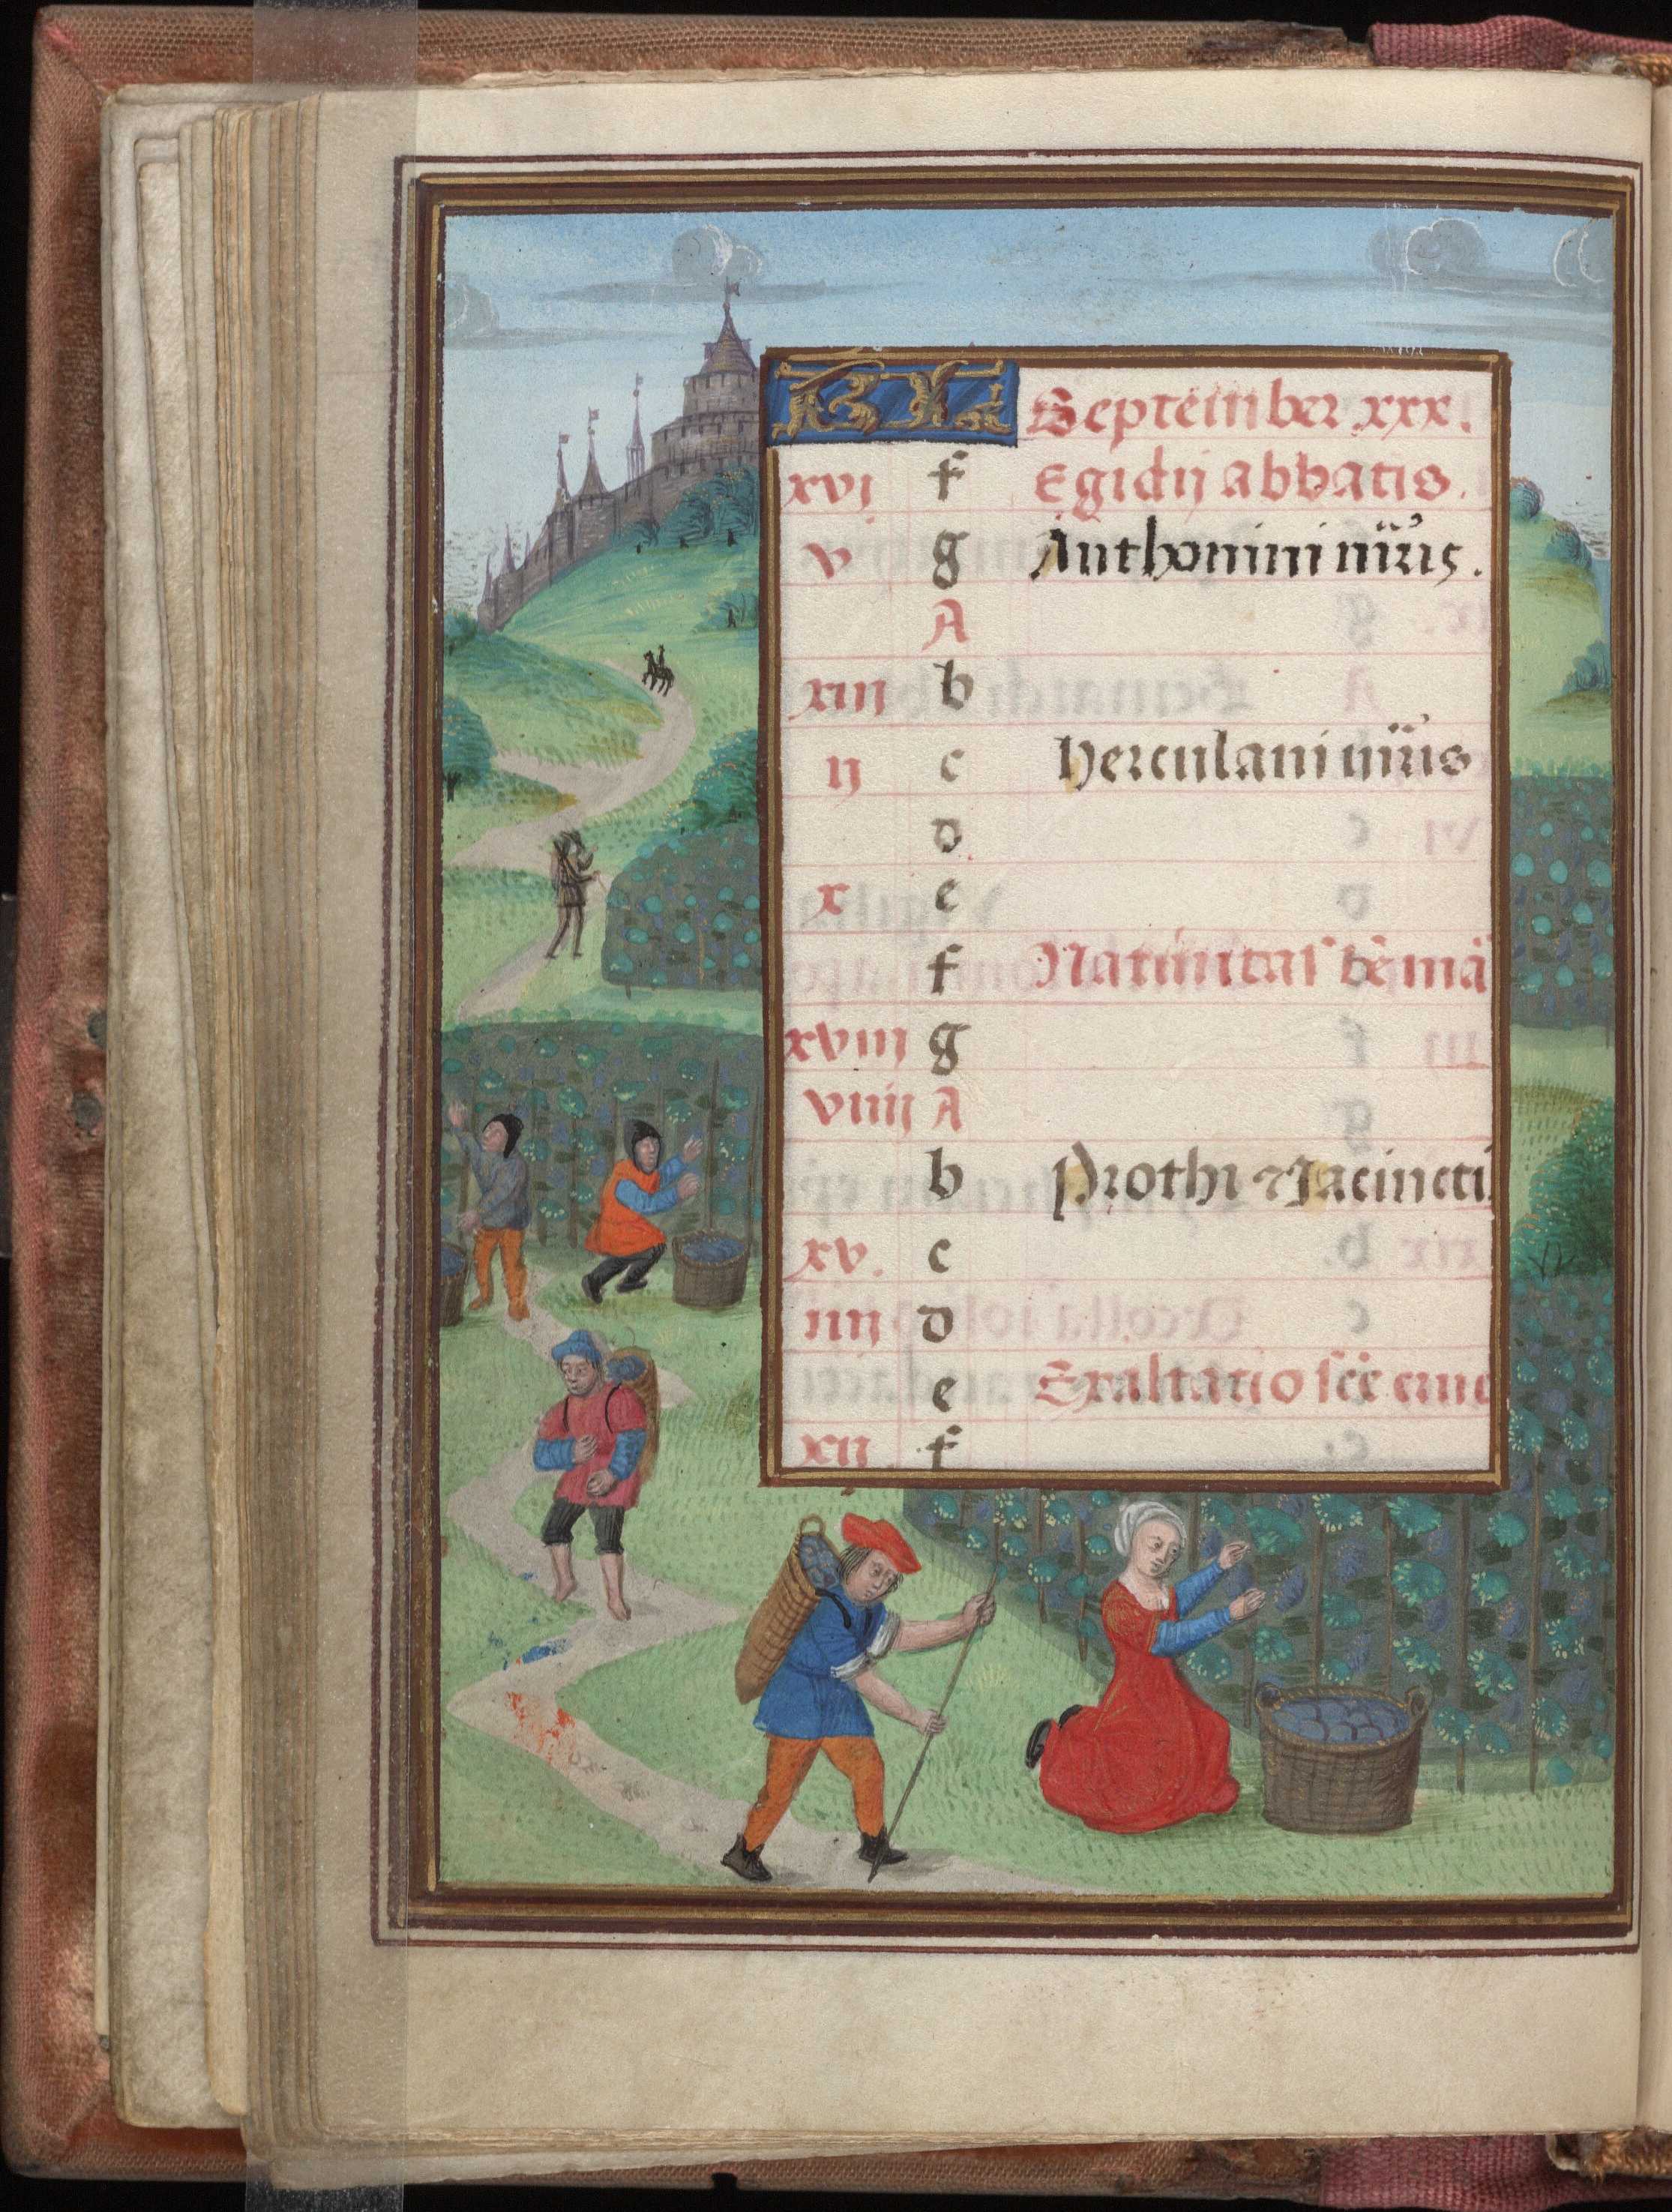 KL September xxx.
xvj f Egidij abbatis.
v g Anthonini mr̃is.
A
xiij b
ij c Herculani mr̃is
d
x e
f Natiuitas bẽ mã
xviij g
viiij A
b Prothi ⁊ Jacincti
xv. c
iiij d
e Exaltatio scẽ cruc
xij f